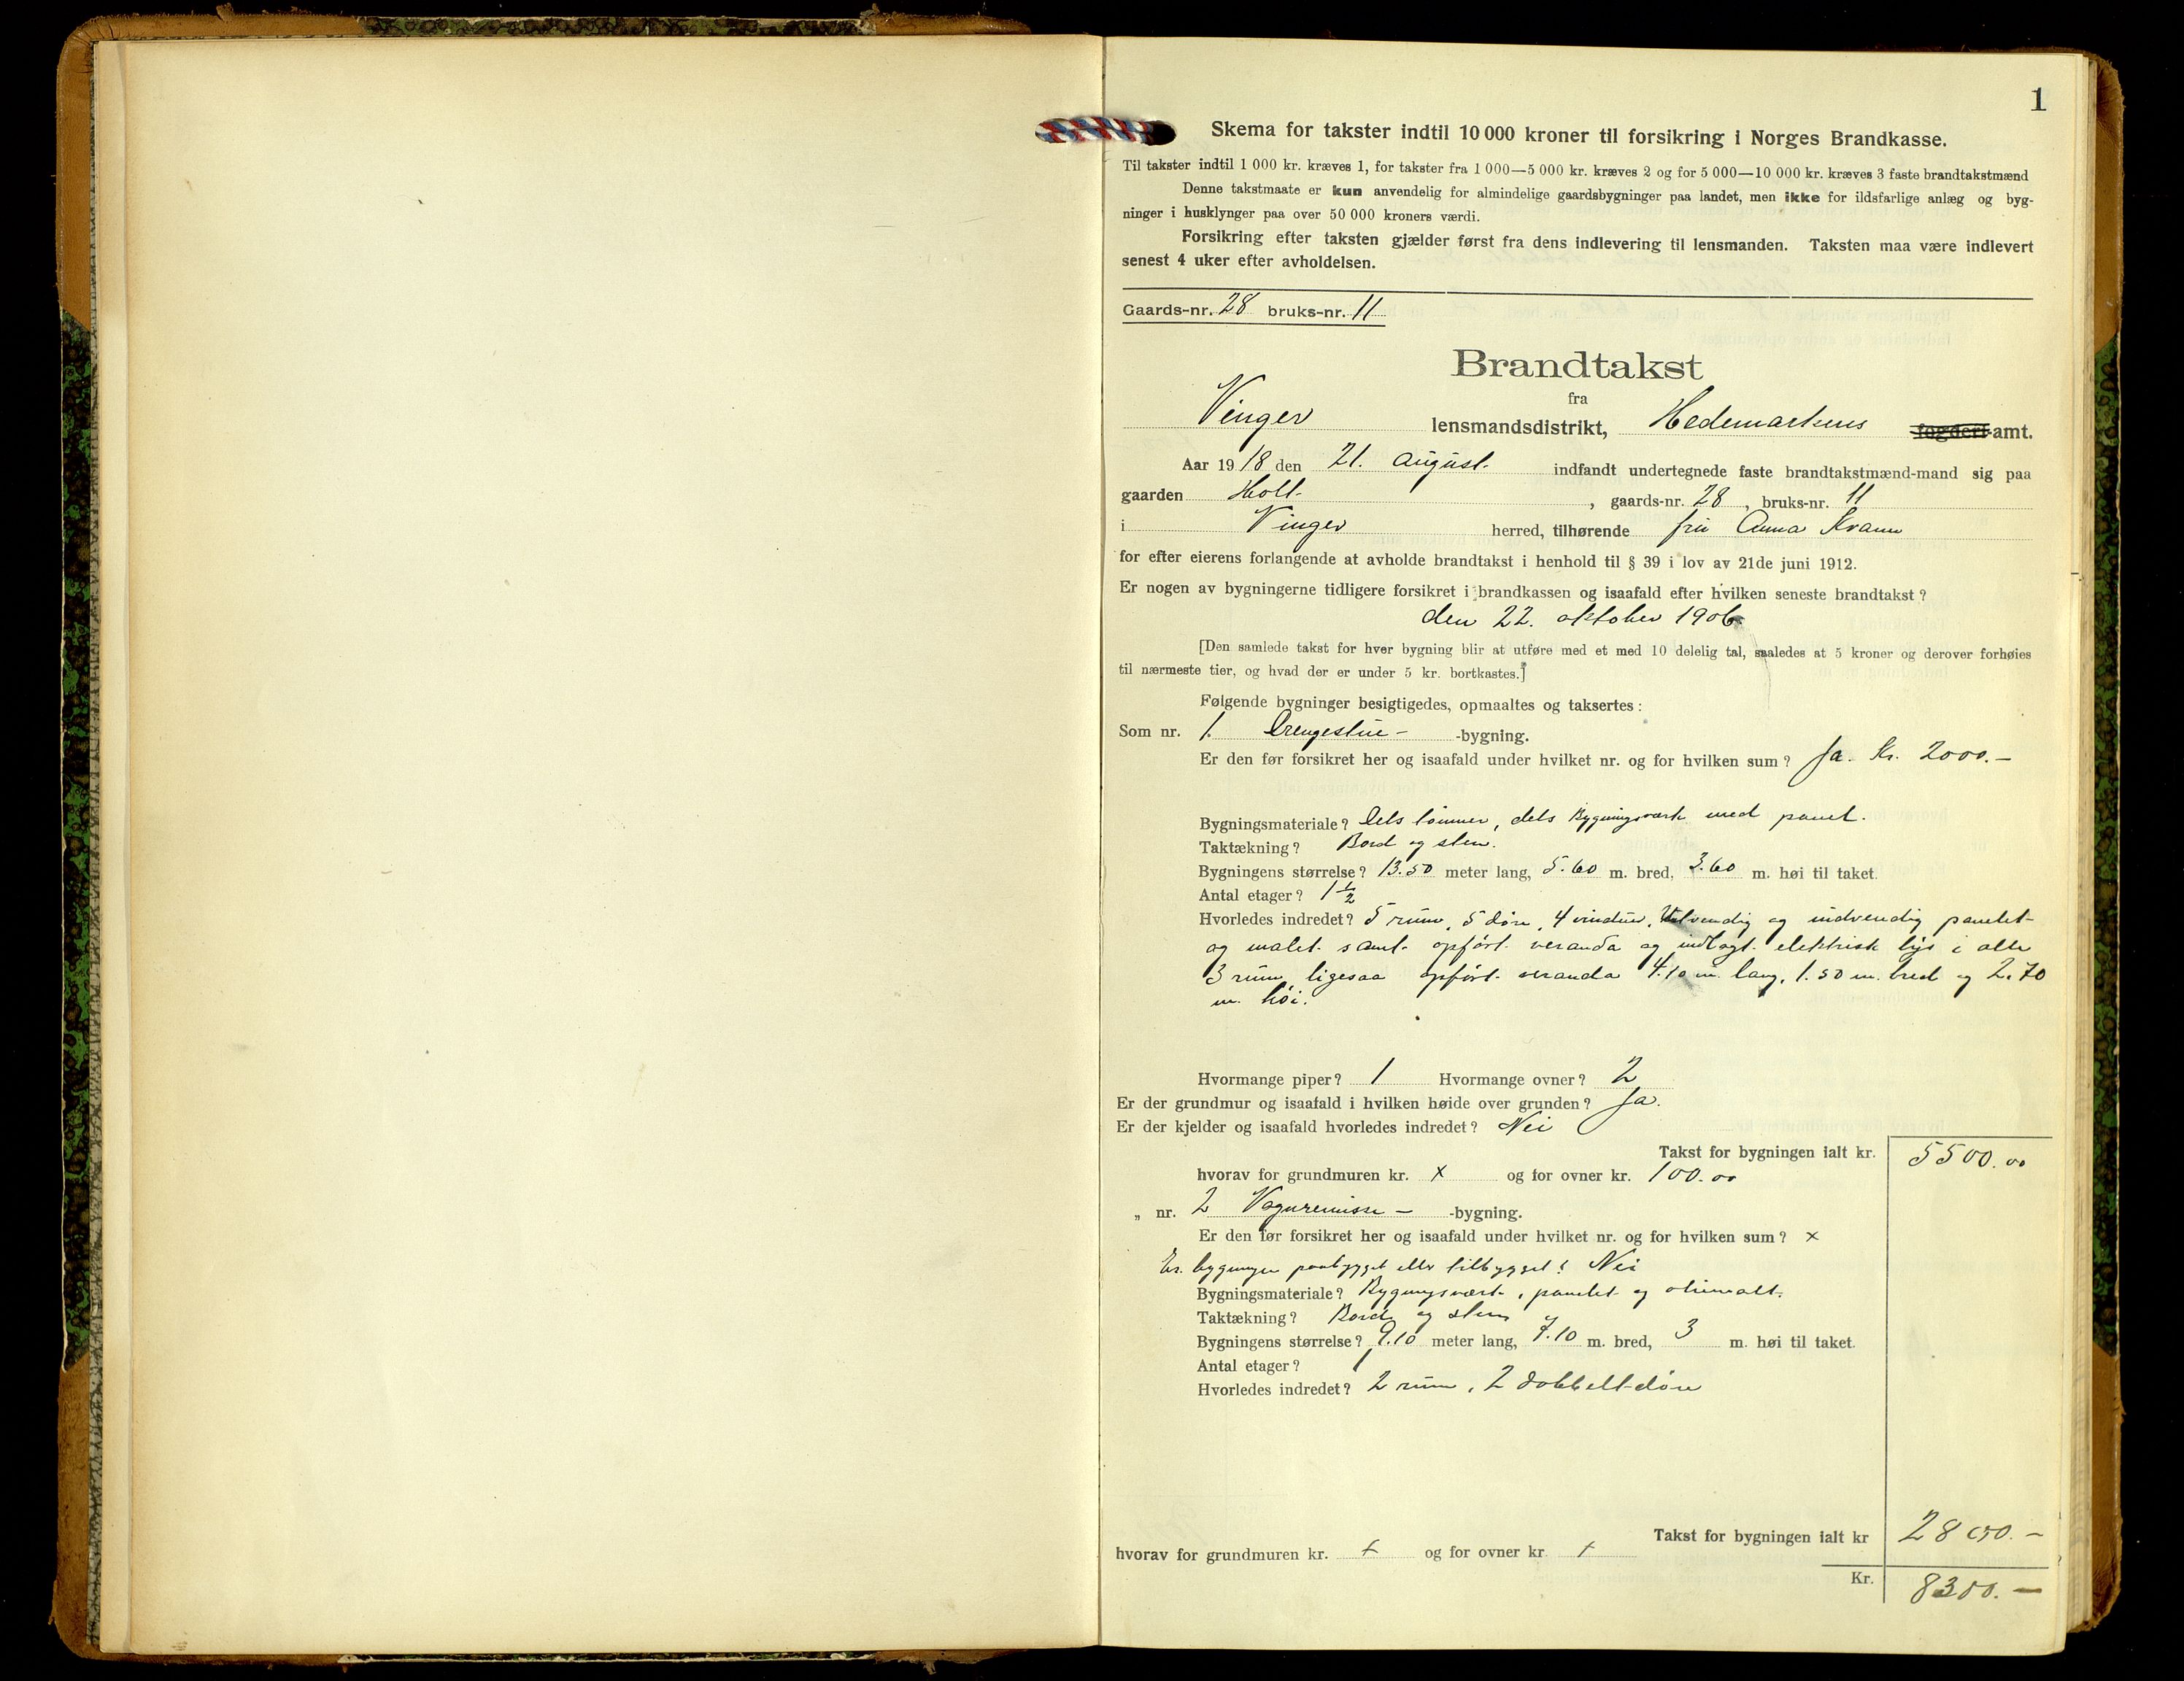 1
Skema for takster indtil 10 000 kroner til forsikring i Norges Brandkasse.
Til takster indtil 1 000 kr. kræves 1, for takster fra 1 000—5 000 kr. kræves 2 og for 5 000—10 000 kr. kræves 3 faste brandtakstmænd
Denne takstmaate er kun anvendelig for almindelige gaardsbygninger paa landet, men ikke for ildsfarlige anlæg og byg-
ninger i husklynger paa over 50 000 kroners værdi.
Forsikring efter taksten gjælder først fra dens indlevering til lensmanden. Taksten maa være indlevert
senest 4 uker efter avholdelsen.
Gaards-nr. 28 bruks-nr. 11
Brandtakst
fra
Vinger lensmandsdistrikt, Hedemarkens fogderi-amt.
Aar 1918 den 21. august indfandt undertegnede faste brandtakstmænd-mand sig paa
gaarden Holt , gaards-nr. 28, bruks-nr. 11
i Vinger herred, tilhørende fru Anna Kvam
for efter eierens forlangende at avholde brandtakst i henhold til § 39 i lov av 21de juni 1912.
Er nogen av bygningerne tidligere forsikret i brandkassen og isaafald efter hvilken seneste brandtakst?
den 22. oktober 1906.
[Den samlede takst for hver bygning blir at utføre med et med 10 delelig tal, saaledes at 5 kroner og derover forhøies
til nærmeste tier, og hvad der er under 5 kr. bortkastes.]
Følgende bygninger besigtigedes, opmaaltes og taksertes:
Som nr. 1. Drengestue- -bygning.
Er den før forsikret her og isaafald under hvilket nr. og for hvilken sum? Ja. Kr. 2000.-
Bygningsmateriale? Dels tømmer, dels Bygningsverk med panel.
Taktækning? Bord og sten.
Bygningens størrelse? 13.50 meter lang, 5.60 m. bred, 3.60 m. høi til taket.
Antal etager? 1 1/2
Hvorledes indredet? 5 rum, 5 døre, 4 vinduer, Utvendig og indvendig panelet
og malet samt opført veranda og indlagt elektrisk lys i alle
3 rum, ligesaa opført veranda 4.10 m. lang, 1.50 m. bred og 2.70
m. høi.
Hvormange piper? 1 Hvormange ovner? 2
Er der grundmur og isaafald i hvilken høide over grunden? Ja.
Er der kjelder og isaafald hvorledes indredet? Nei
Takst for bygningen ialt kr. 5500.00
hvorav for grundmuren kr. x og for ovner kr. 100.00
„ nr. 2 Vognremisse- -bygning.
Er den før forsikret her og isaafald under hvilket nr. og for hvilken sum? x
Er bygningen paabygget eller tilbygget? Nei
Bygningsmateriale? Bygningsverk, panelet og oliemalt.
Taktækning? Bord og sten
Bygningens størrelse? 9.10 meter lang, 7.10 m. bred, 3 m. høi til taket.
Antal etager? 1
Hvorledes indredet? 2 rum, 2 dobbelt-døre
Takst for bygningen ialt kr 2800.-
hvorav for grundmuren kr. x og for ovner kr x
Kr. 8300.-